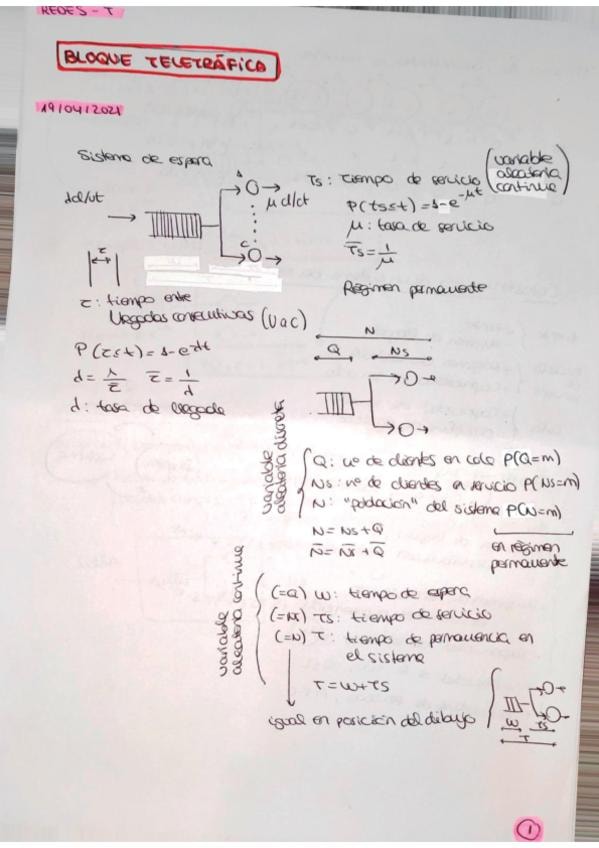 REDES - T
BLOQUE TELETRÁFICO
19/04/2021
Sistema de espera
λcl/ut
1
c
μ cl/ct
Ts: tiempo de servicio (variable aleatoria continua)
P(ts≤t) = 1-e^-μt
μ: tasa de servicio
T̄s = 1/μ
Régimen permanente
τ
τ: tiempo entre
llegadas consecutivas (vac)
P(τ≤t) = 1-e^-λt
λ = 1/τ̄ τ̄ = 1/λ
λ: tasa de llegada
N
Q Ns
variable aleatoria discreta
Q: nº de clientes en cola P(Q=m)
Ns: nº de clientes en servicio P(Ns=m)
N: "población" del sistema P(N=m)
N = Ns + Q
N̄ = N̄s + Q̄
en régimen
permanente
variable aleatoria continua
(=Q) W: tiempo de espera
(=Ns) Ts: tiempo de servicio
(=N) T: tiempo de permanencia en
el sistema
T = W + Ts
igual en posición del dibujo
W Ts
T
1